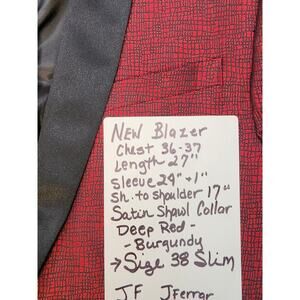 NEW Blazer
Chest 36-37
Length 27"
Sleeve 24" + 1"
Sh. to shoulder 17"
Satin Shawl Collar
Deep Red -
- Burgundy
→ Size 38 Slim
JF JFerrar